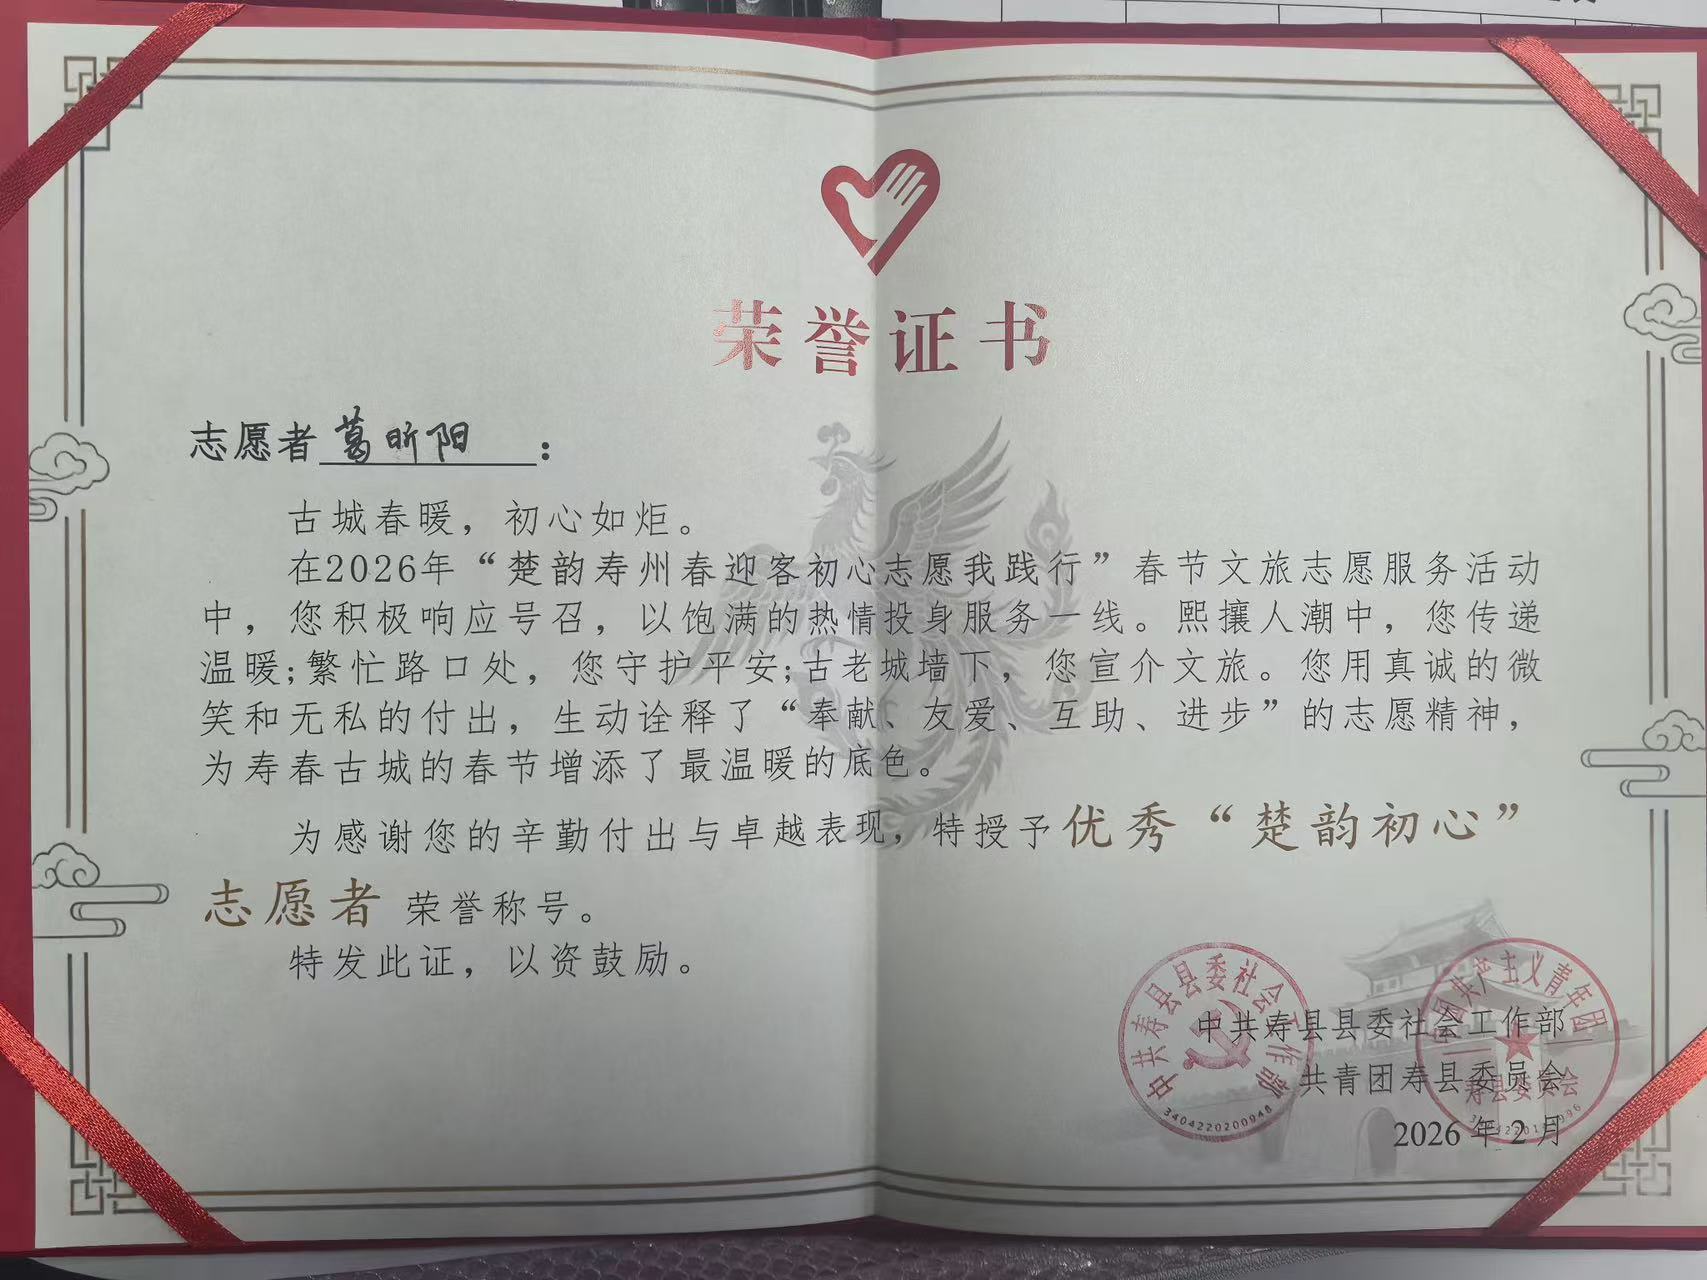 荣誉证书
志愿者葛昕阳：
古城春暖，初心如炬。
在2026年“楚韵寿州春迎客初心志愿我践行”春节文旅志愿服务活动
中，您积极响应号召，以饱满的热情投身服务一线。熙攘人潮中，您传递
温暖;繁忙路口处，您守护平安;古老城墙下，您宣介文旅。您用真诚的微
笑和无私的付出，生动诠释了“奉献、友爱、互助、进步”的志愿精神，
为寿春古城的春节增添了最温暖的底色。
为感谢您的辛勤付出与卓越表现，特授予优秀“楚韵初心”
志愿者 荣誉称号。
特发此证，以资鼓励。
中共寿县县委社会工作部
共青团寿县委员会
2026年2月
中共寿县县委社会工作部
3404220200948
中国共产主义青年团
寿县委员会